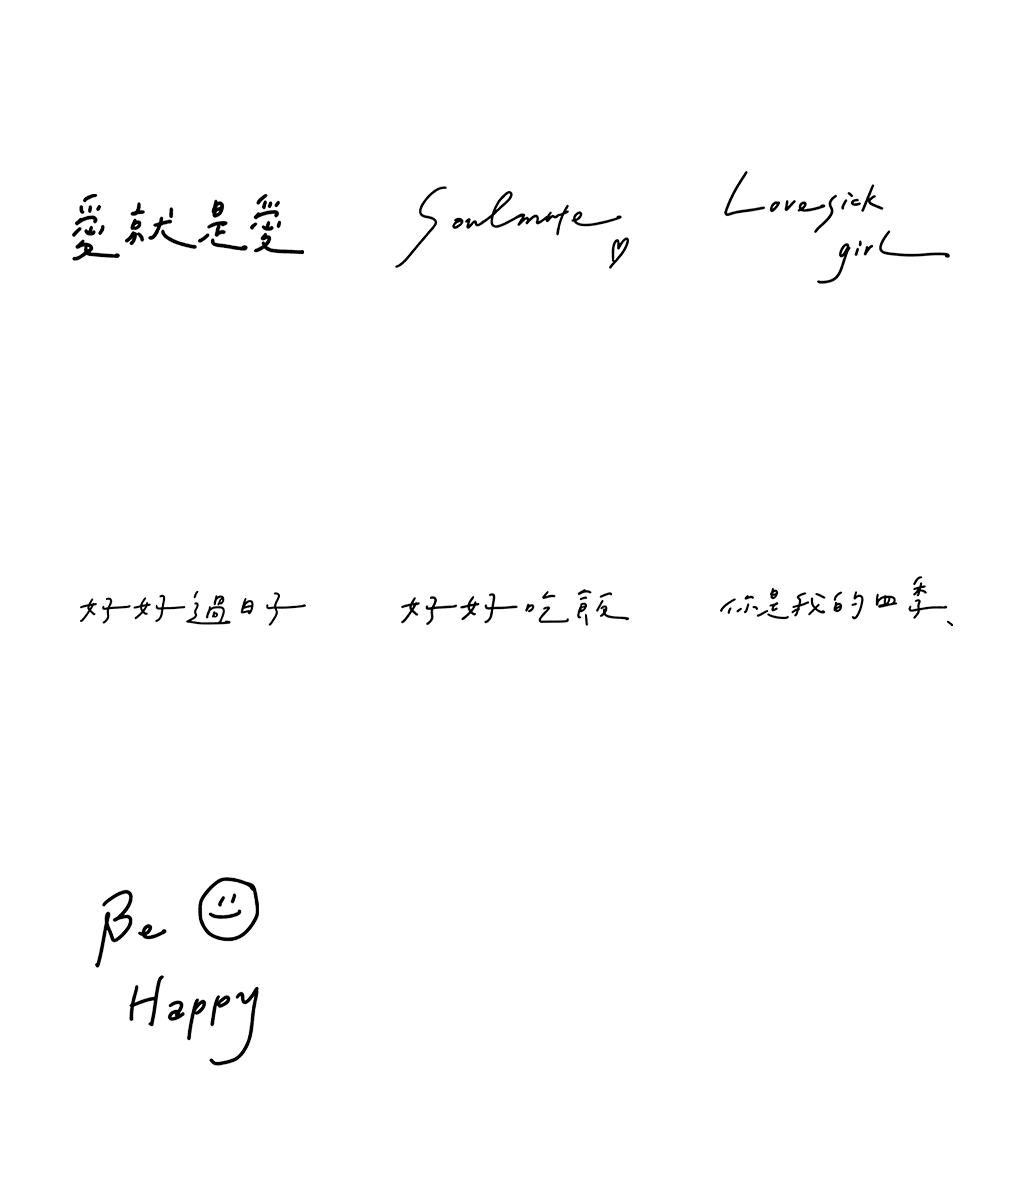 愛就是愛
Soulmate
Lovesick
girl
好好過日子
好好吃飯
你是我的四季、
Be
Happy